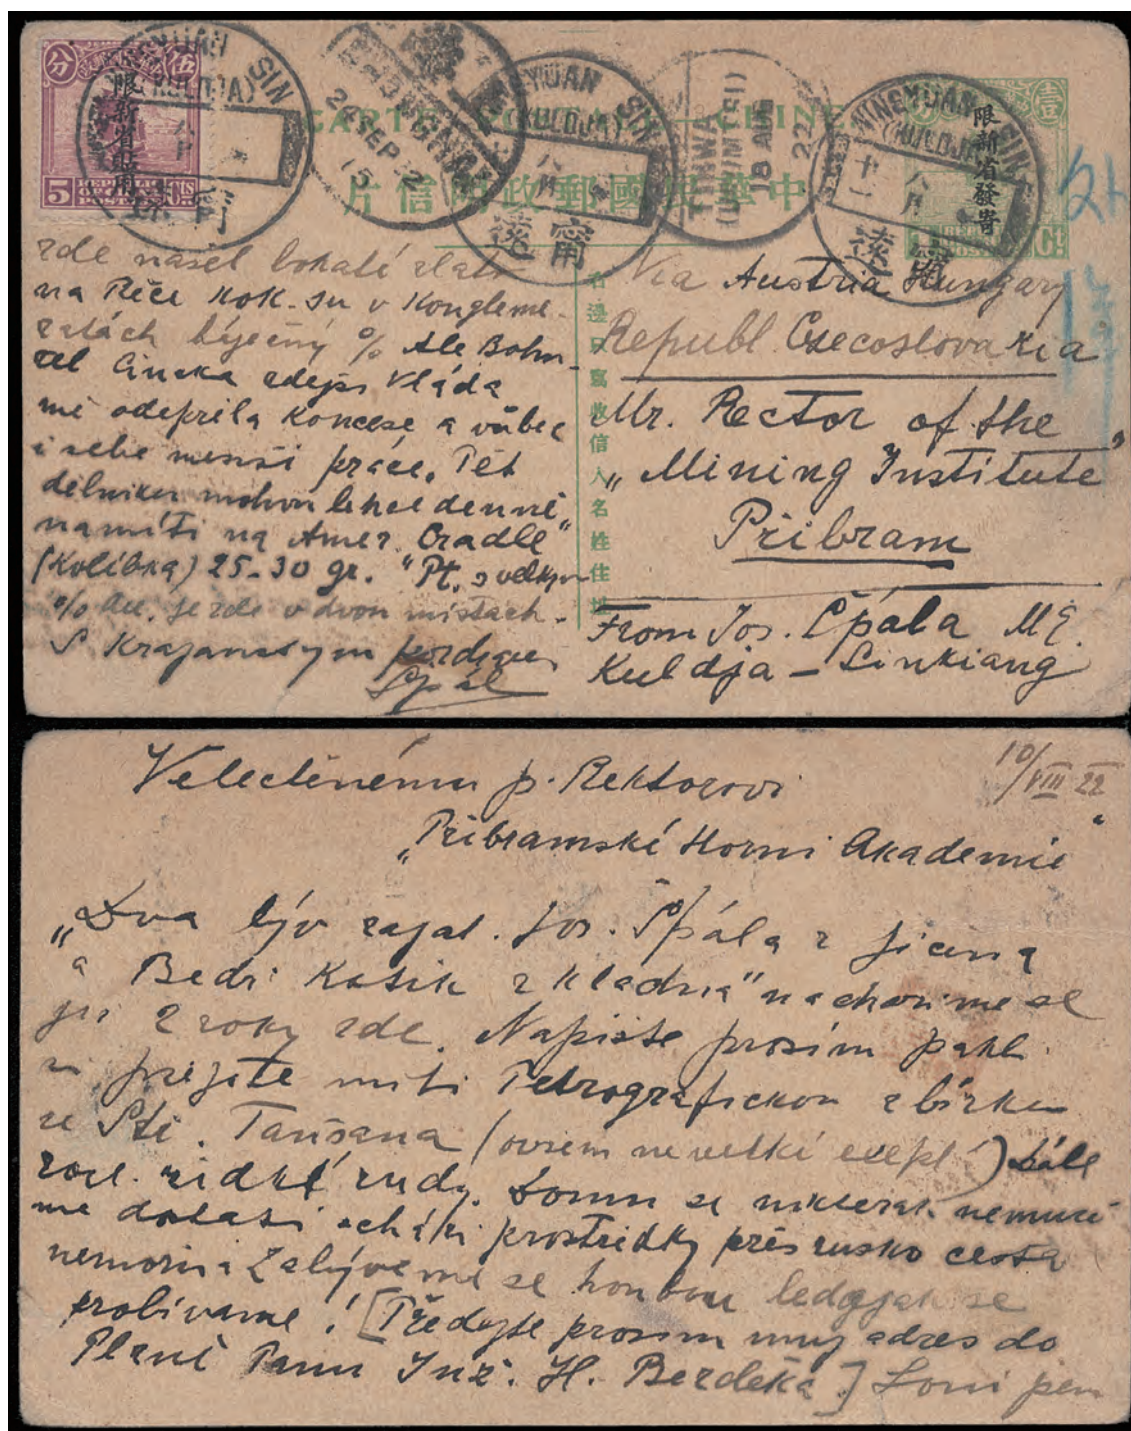 CARTE POSTALE — CHINE
中華民國郵政明信片
限新省貼用
限新省發寄
分 伍
5 CTS
壹
Ct
NINGYUAN SIN
(KULDJA)
甯遠
24 SEP 22
15
NINGYUAN SIN
(KULDJA)
八月
甯遠
TIHWA
(URUMTSI)
18 AUG 22
NINGYUAN SIN
(KULDJA)
十一 八月
甯遠
右邊只寫收信人名姓住址
zde našel bohaté zlato
na Řece Kok-su v Konglome-
rátách báječný % Ale Bohu-
žel Čínská zdejší vláda
mě odepřela Koncese a vůbec
i sebe menší práce. Pět
dělníků mohou lehce denně
namíti na Amer. Cradle"
(Kolíbka) 25-30 gr. "Pt. s velkým
% Au. je zde v dvou místach.
S Krajanským pozdravem
Špál
Via Austria Hungary
Republ. Czecoslovakia
Mr. Rector of the
„Mining Institute"
Přibram
From Jos. Špála ME.
Kuldja – Sinkiang
10/VIII 22
Velectěnému p. Rektorovi
„Přibramské Horní Akademie"
„Dva býv zajat. Jos. Špála z Jičína
a Bedř. Kašík z Kladna" nacházíme se
již 2 roky zde. Napište prosím pakli
si přejete míti Petrografickou sbírku
ze Stř. Tanšana (ovšem ne velké exepl.) dále
vzácné řídké rudy. Domu se nikterak nemůže
me dostati schází prostředky přes rusko cesta
nemožná Zabýváme se honbou ledajak se
probíváme! [Předejte prosím muj adres do
Plzně Panu Inž. H. Bezděka] Loni jsem